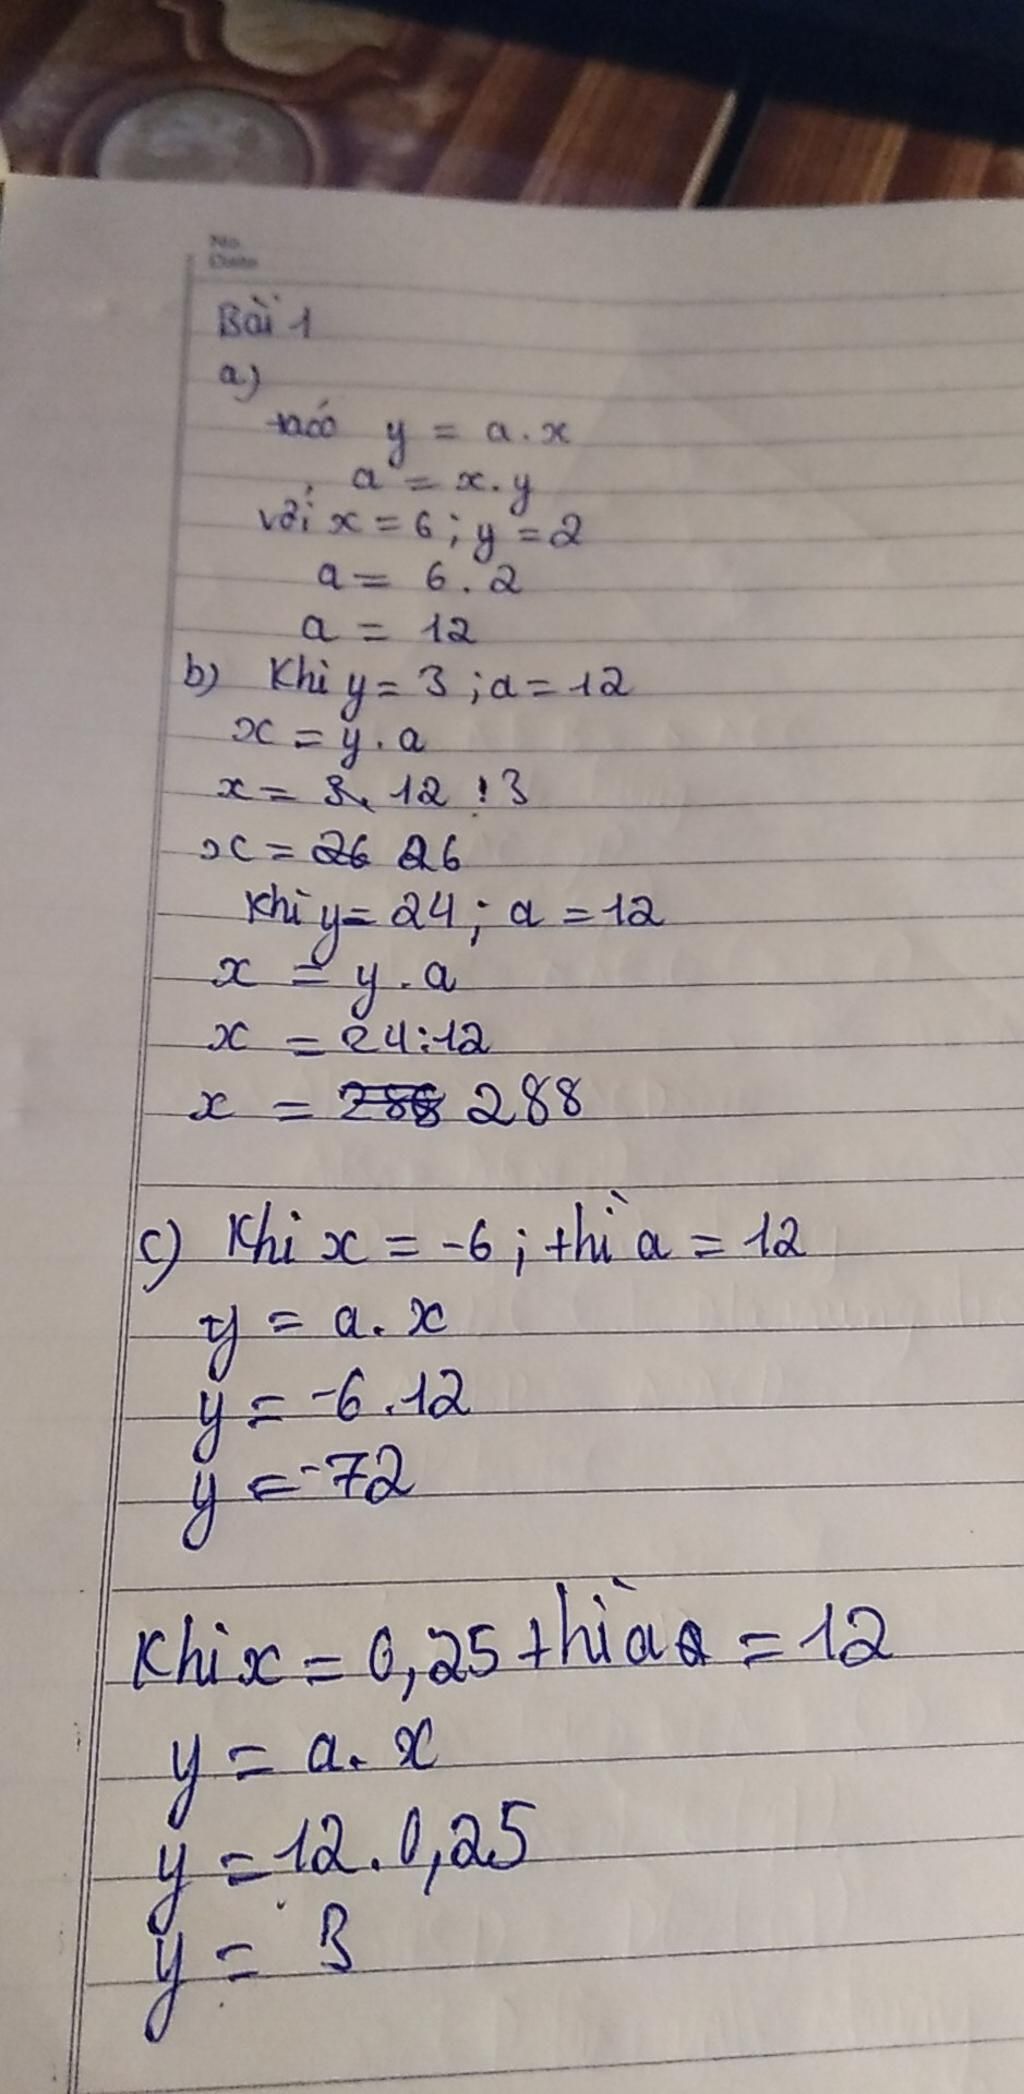 No.
Date
Bài 1
a)
ta có y = a.x
a = x.y
với x = 6; y = 2
a = 6.2
a = 12
b) Khi y = 3; a = 12
x = y.a
x = 12 : 3
x = 26 26
Khi y = 24; a = 12
x = y.a
x = 24:12
x = 288 288
c) Khi x = -6; thì a = 12
y = a.x
y = -6.12
y = -72
Khi x = 0,25 thì a = 12
y = a.x
y = 12.0,25
y = 3